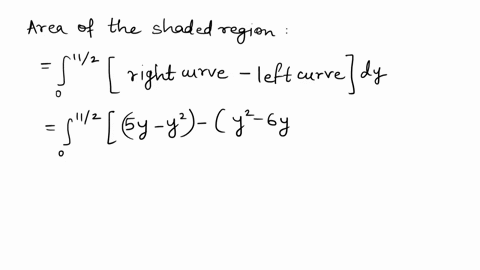 Area of the shaded region :
= ∫₀^{11/2} [ right curve - left curve ] dy
= ∫₀^{11/2} [ (5y - y²) - ( y² - 6y